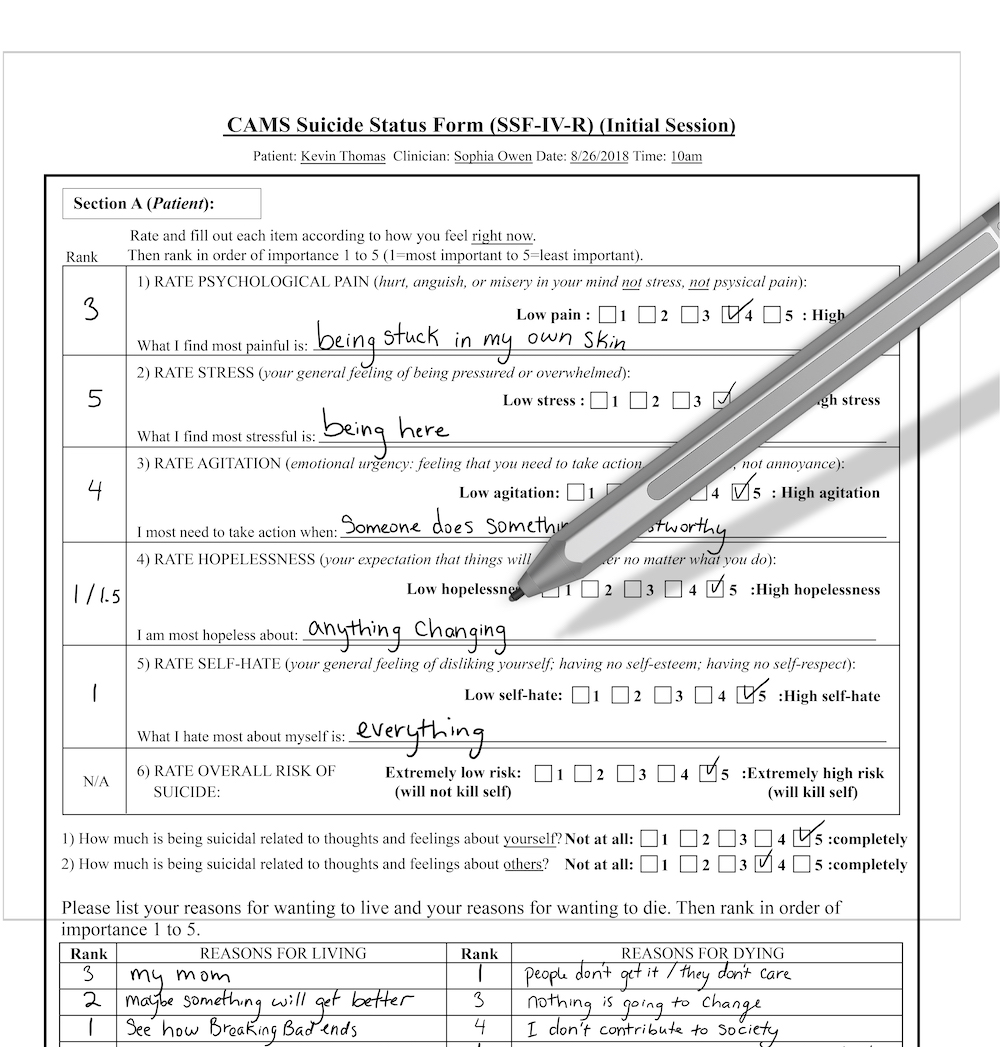 CAMS Suicide Status Form (SSF-IV-R) (Initial Session)
Patient: Kevin Thomas Clinician: Sophia Owen Date: 8/26/2018 Time: 10am
Section A (Patient):
Rate and fill out each item according to how you feel right now.
Rank Then rank in order of importance 1 to 5 (1=most important to 5=least important).
1) RATE PSYCHOLOGICAL PAIN (hurt, anguish, or misery in your mind not stress, not psysical pain):
3 Low pain : 1 2 3 4 5 : High
What I find most painful is: being stuck in my own skin
2) RATE STRESS (your general feeling of being pressured or overwhelmed):
5 Low stress : 1 2 3 stress
What I find most stressful is: being here
3) RATE AGITATION (emotional urgency: feeling that you need to take action not annoyance):
4 Low agitation: 1 4 5 : High agitation
I most need to take action when: Someone does
4) RATE HOPELESSNESS (your expectation that things will no matter what you do):
1/1.5 Low 1 2 3 4 5 :High hopelessness
I am most hopeless about: anything Changing
5) RATE SELF-HATE (your general feeling of disliking yourself; having no self-esteem; having no self-respect):
1 Low self-hate: 1 2 3 4 5 :High self-hate
What I hate most about myself is: everything
N/A 6) RATE OVERALL RISK OF Extremely low risk: 1 2 3 4 5 :Extremely high risk
SUICIDE: (will not kill self) (will kill self)
1) How much is being suicidal related to thoughts and feelings about yourself? Not at all: 1 2 3 4 5 :completely
2) How much is being suicidal related to thoughts and feelings about others? Not at all: 1 2 3 4 5 :completely
Please list your reasons for wanting to live and your reasons for wanting to die. Then rank in order of
importance 1 to 5.
Rank REASONS FOR LIVING Rank REASONS FOR DYING
3 my mom 1 people don't get it / they don't care
2 maybe something will get better 3 nothing is going to change
1 See how Breaking Bad ends 4 I don't contribute to society